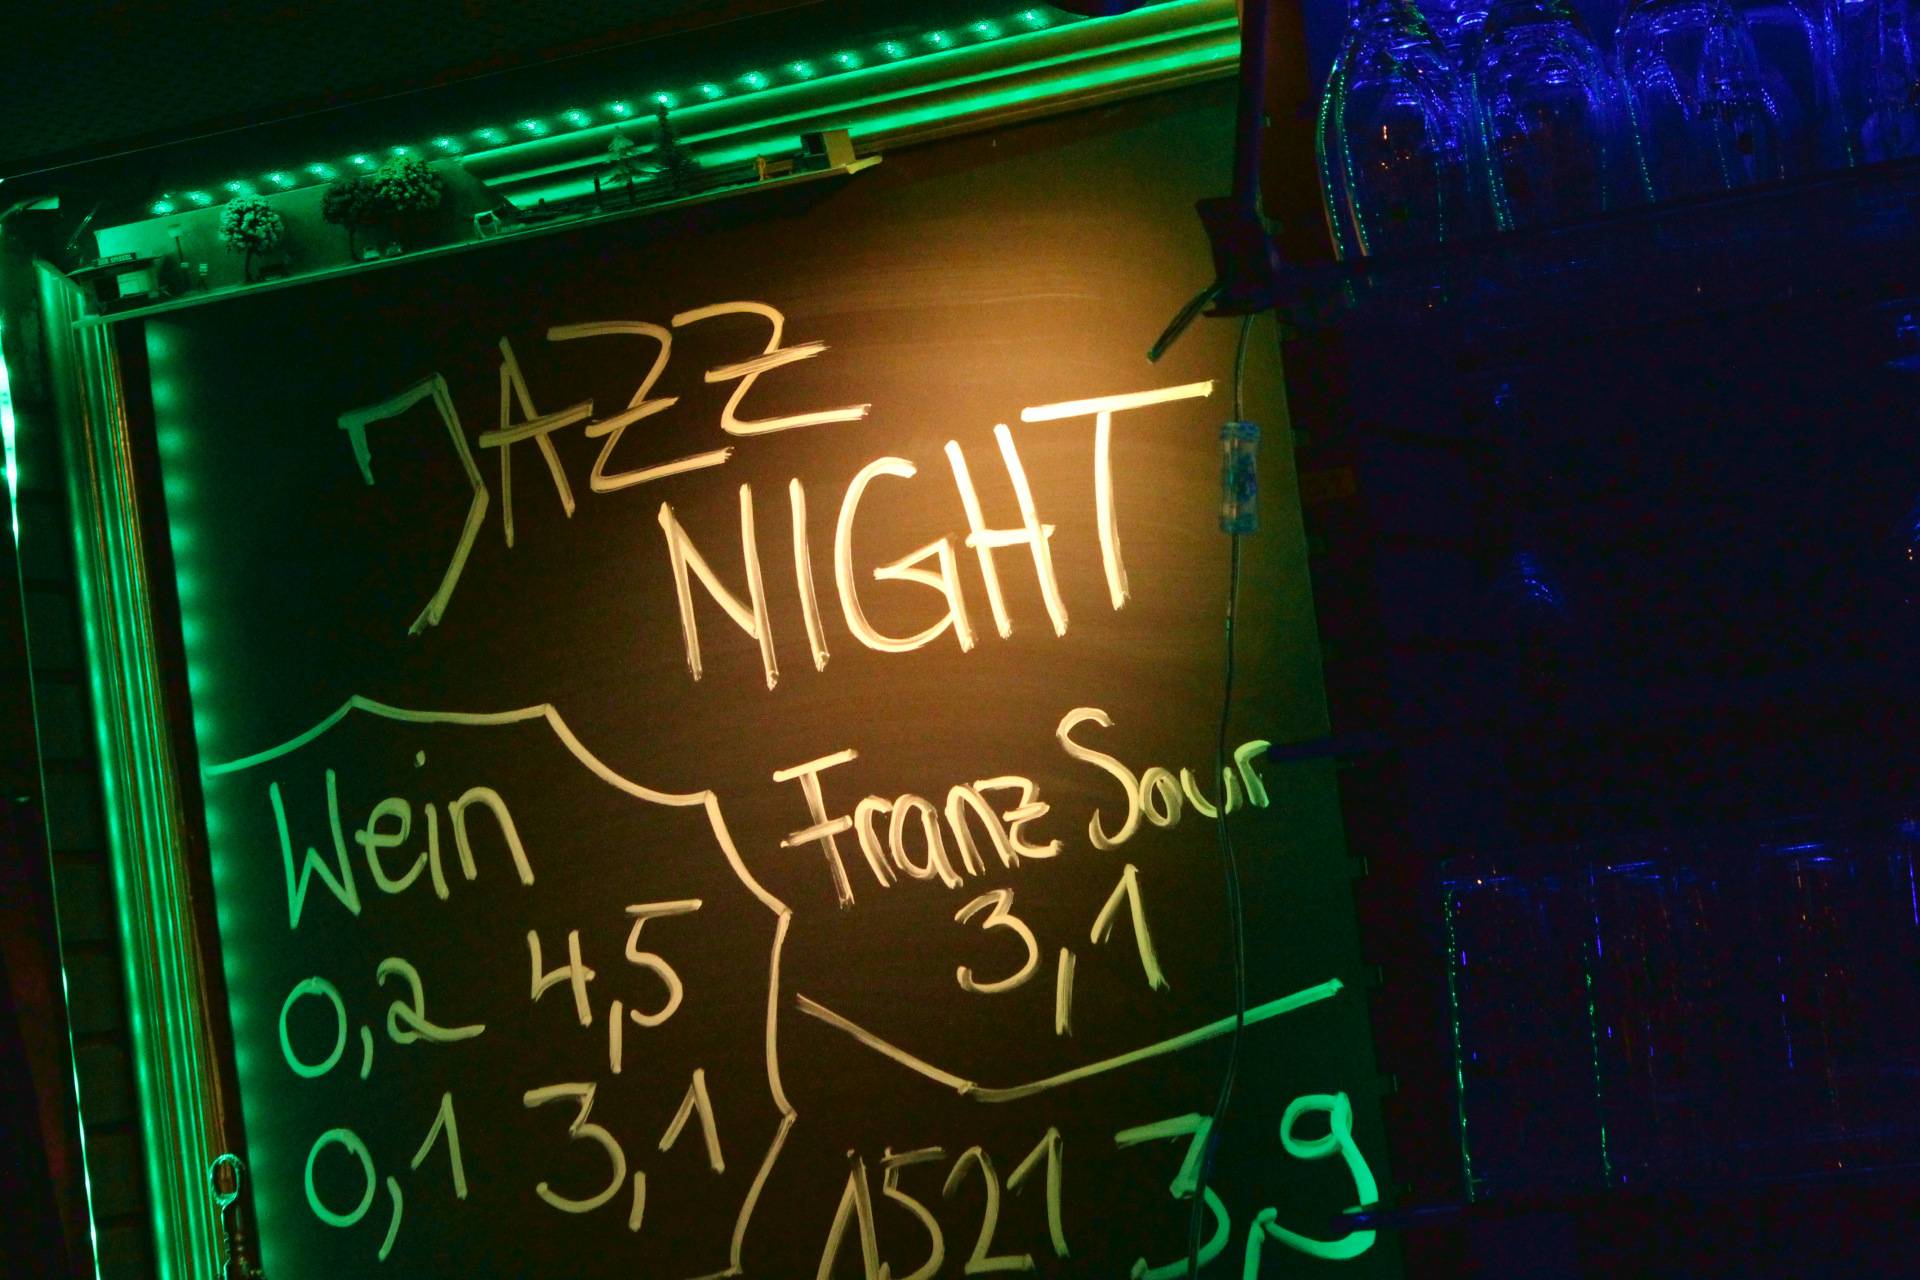 JAZZ
NIGHT
Wein
0,2 4,5
0,1 3,1
Franz Sour
3,1
1521 3,9